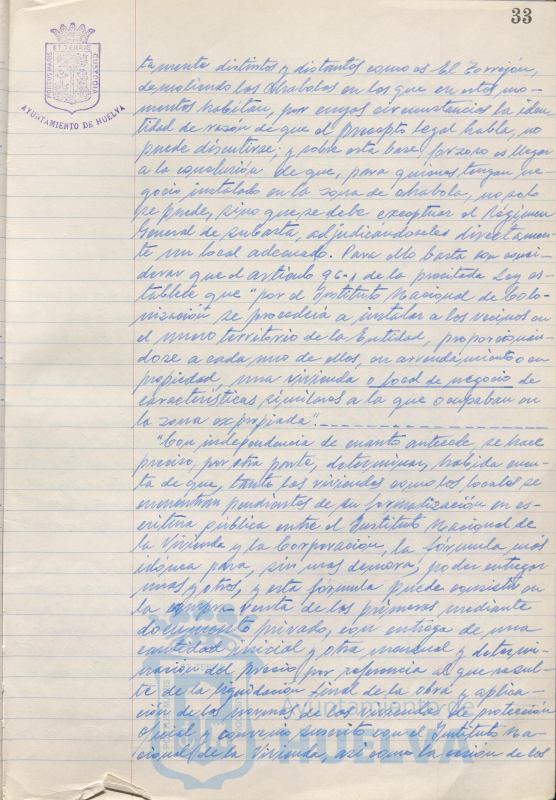 33
PORTUS MARIS ET TERRAE CUSTODIA
AYUNTAMIENTO DE HUELVA
tamente distintos y distantes como es El Torrejón,
demoliendo las chabolas en los que en estos mo-
mentos habitan, por cuyas circunstancias la iden-
tidad de razón de que el precepto legal habla, no
puede discutirse; y sobre esta base forzoso es llegar
a la conclusión de que, para quienes tengan ne-
gocio instalado en la zona de chabola, no solo
se puede, sino que se debe exceptuar el Régimen
General de subasta, adjudicándoseles directamen-
te un local adecuado. Para ello basta con consi-
derar que el artículo 96-1 de la precitada Ley es-
tablece que "por el Instituto Nacional de Colo-
nización se procederá a instalar a los vecinos en
el nuevo territorio de la Entidad, proporcionán-
dose a cada uno de ellos, en arrendamiento o en
propiedad, una vivienda o local de negocio de
características similares a la que ocupaban en
la zona expropiada".
"Con independencia de cuanto antecede se hace
preciso, por otra parte, determinar, habida cuen-
ta de que, tanto las viviendas como los locales se
encuentran pendientes de su formalización en es-
critura pública entre el Instituto Nacional de
la Vivienda y la Corporación, la fórmula más
idónea para, sin más demora, poder entregar
unas y otros, y esta fórmula puede consistir en
la compra-venta de las primeras mediante
documento privado, con entrega de una
cantidad inicial y otra mensual y determi-
nación del precio por referencia al que resul-
te de la liquidación final de la obra y aplica-
ción de las normas de las viviendas de protección
oficial y convenio suscrito con el Instituto Na-
cional de la Vivienda, así como la cesión de los
Ayuntamiento de
HUELVA